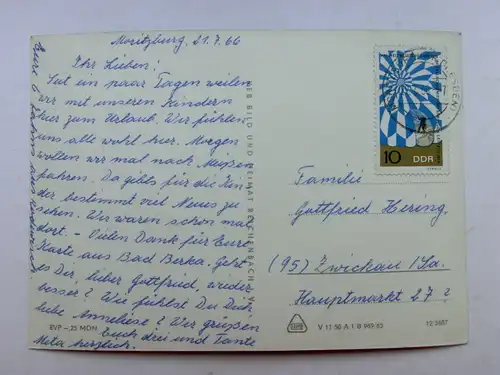 Moritzburg, 21.7.66
Ihr Lieben!
Seit ein paar Tagen weilen
wir mit unseren Kindern
hier zum Urlaub. Wir fühlen
uns alle wohl hier. Morgen
wollen wir mal nach Meißen
fahren. Da gibts für die Kin
der bestimmt viel Neues zu
sehen. Wir waren schon mal
dort. - Vielen Dank für Eure
Karte aus Bad Berka. Geht
es Dir, lieber Gottfried, wieder
besser? Wie fühlst Du Dich,
liebe Anneliese? Wir grüßen
Euch drei und Tante
Meta herzlich.
Eure 6 aus
EVP - 25 MDN
BILD UND HEIMAT REICHENBACH
10 DDR
Familie
Gottfried Hering
(95) Zwickau/Sa.
Hauptmarkt 27?
V 11 50 A 1 B 969/65
12/3687